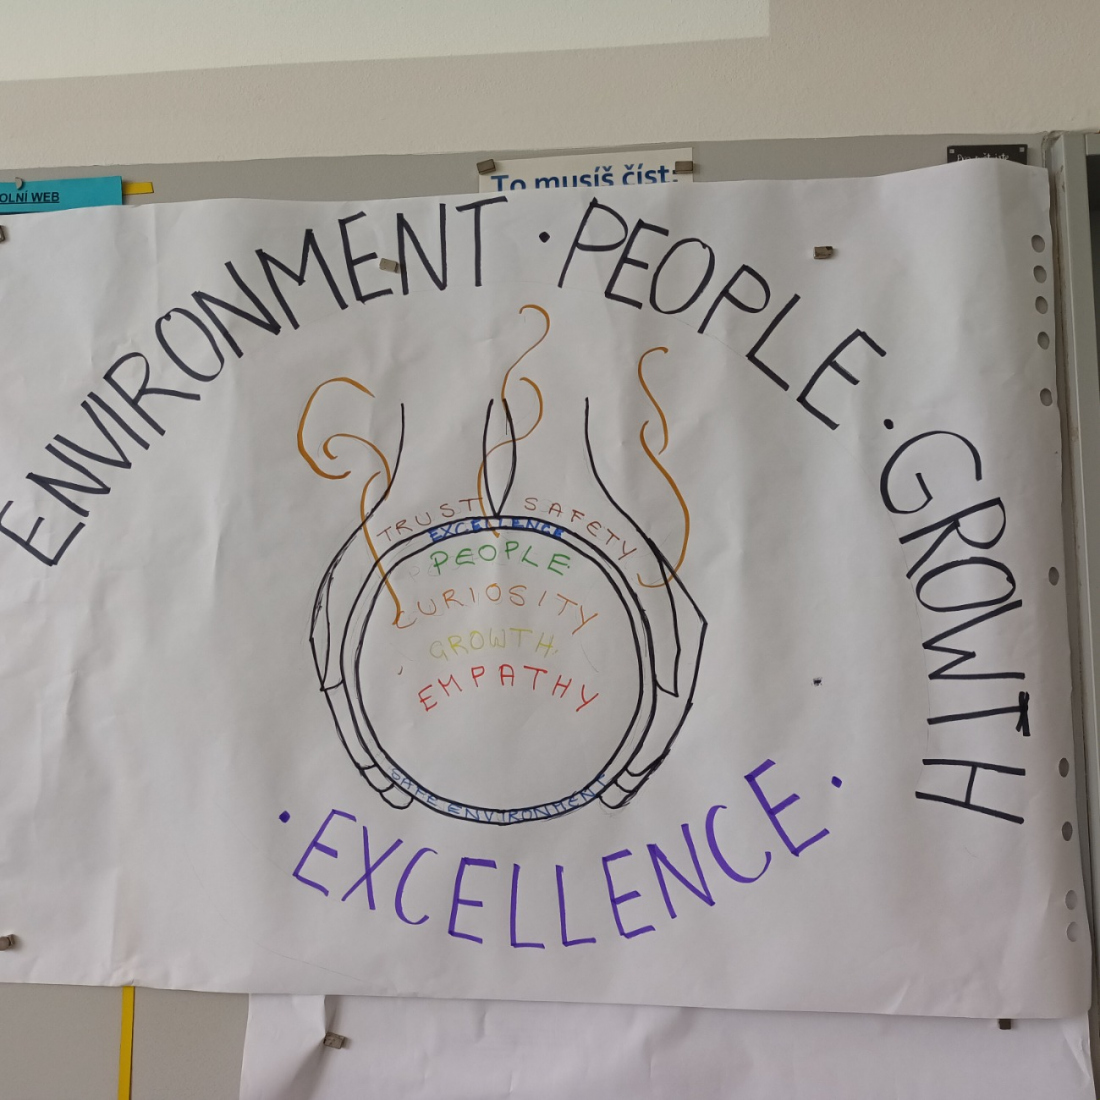 OLNÍ WEB
To musíš číst:
ENVIRONMENT · PEOPLE · GROWTH
TRUST SAFETY
EXCELLENCE
PEOPLE
CURIOSITY
GROWTH
EMPATHY
SAFE ENVIRONMENT
· EXCELLENCE ·